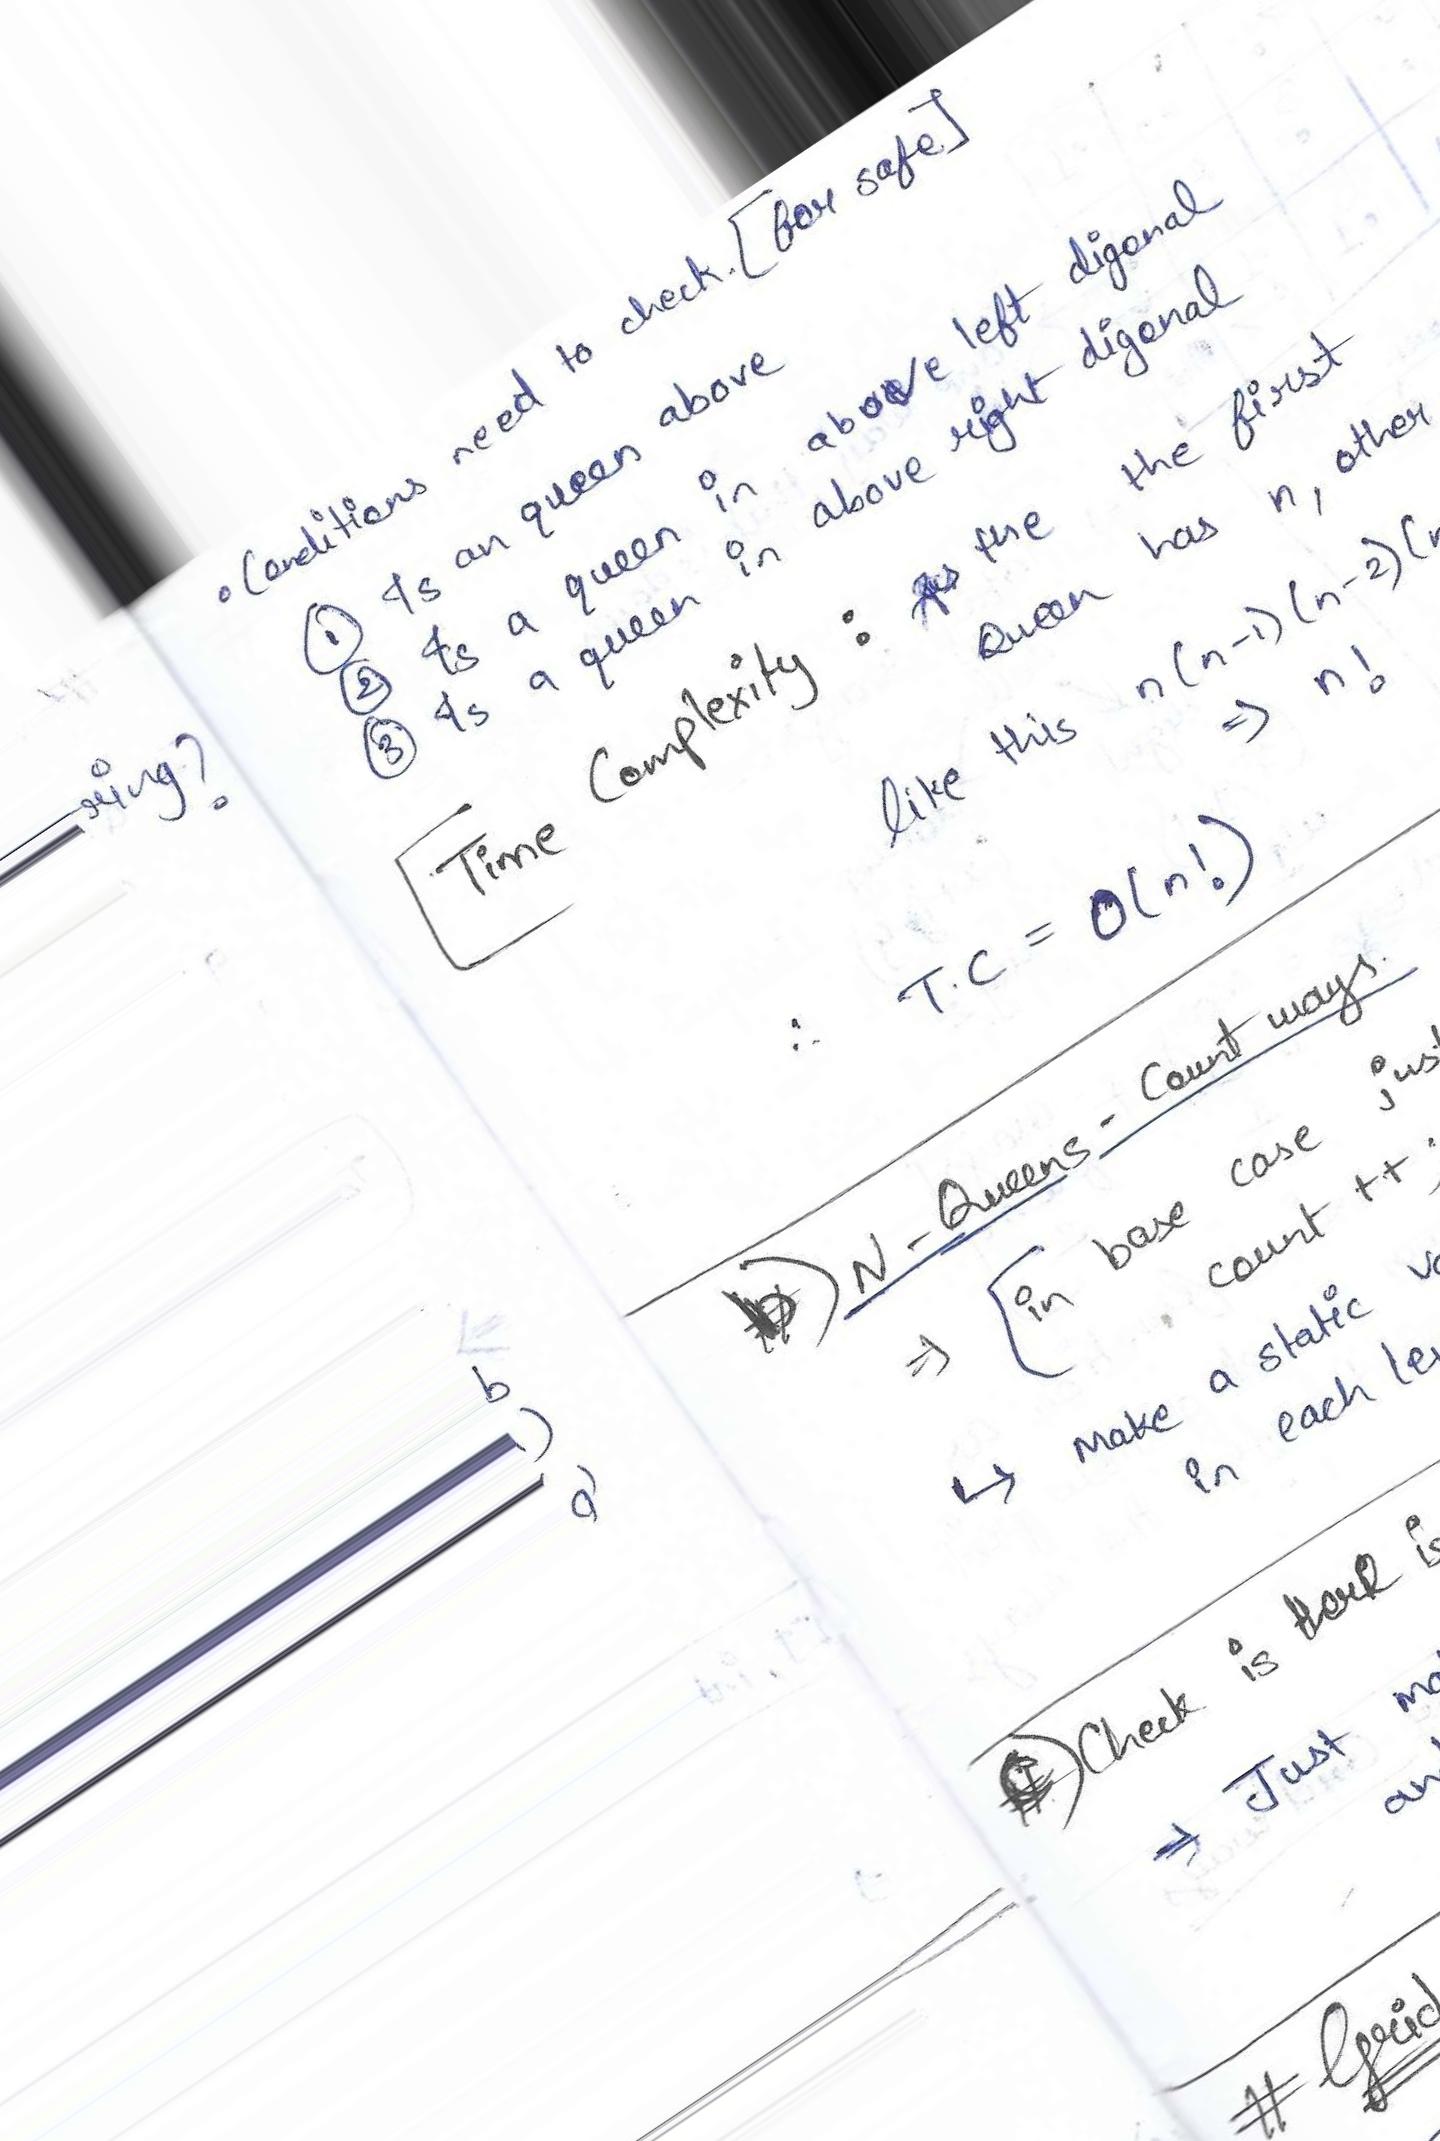 • Conditions need to check. [for safe]
① Is an queen above
② Is a queen in above left digonal
③ Is a queen in above right digonal
Time Complexity : As the the first
Queen has n, other
like this n(n-1)(n-2)(n
=> n!
∴ T.C = O(n!)
b) N-Queens - Count ways.
=> [in base case just
count ++;
↳ Make a static va
in each lev
C) Check is is
=> Just ma
an
# Grid
ring?
b)
a)